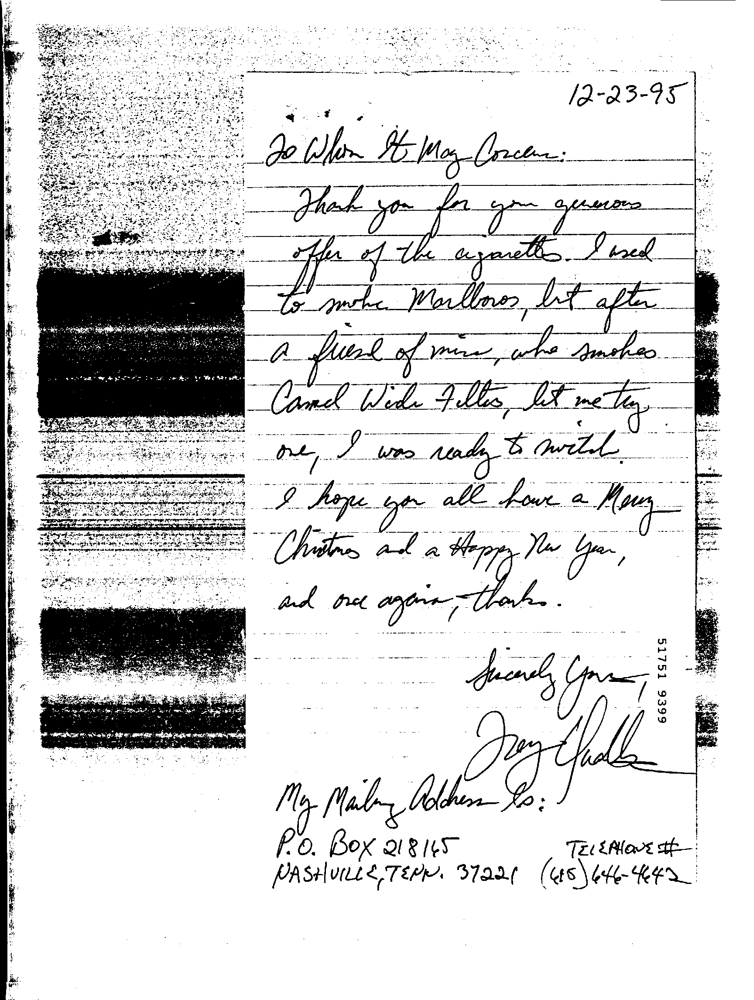 12-23-95
To Whom It May Concern:
Thank you for your generous
offer of the cigarettes. I used
to smoke Marlboros, but after
a friend of mine, who smokes
Camel Wide Filters, let me try
one, I was ready to switch.
I hope you all have a Merry
Christmas and a Happy New Year,
and once again, thanks.
Sincerely Yours,
51751 9399
My Mailing Address Is:
P.O. BOX 218165
TELEPHONE #
NASHVILLE, TENN. 37221 (615) 646-4642